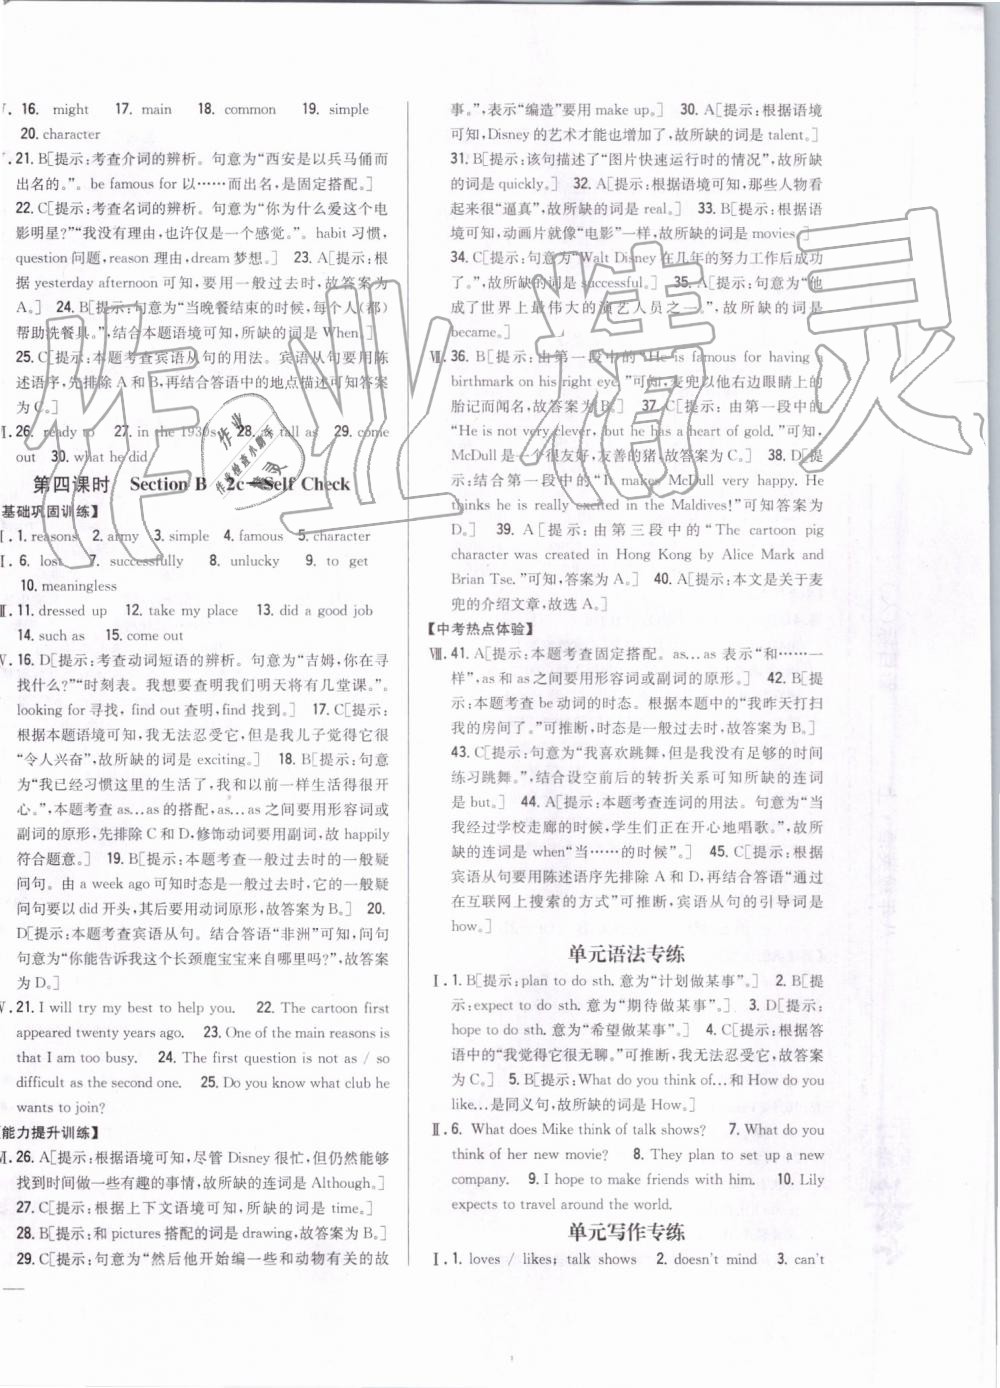 Ⅳ. 16. might 17. main 18. common 19. simple
20. character
Ⅴ. 21. B[提示:考查介词的辨析。句意为“西安是以兵马俑而
出名的。”。be famous for 以……而出名,是固定搭配。]
22. C[提示:考查名词的辨析。句意为“你为什么爱这个电
影明星?”“我没有理由,也许仅是一个感觉。”。habit 习惯,
question 问题,reason 理由,dream 梦想。] 23. A[提示:根
据 yesterday afternoon 可知,要用一般过去时,故答案为
A。] 24. B[提示:句意为“当晚餐结束的时候,每个人(都)
帮助洗餐具。”,结合本题语境可知,所缺的词是 When。]
25. C[提示:本题考查宾语从句的用法。宾语从句要用陈
述语序,先排除 A 和 B,再结合答语中的地点描述可知答案
为 C。]
Ⅱ. 26. ready to 27. in the 1930s 28. as tall as 29. come
out 30. what he did
第四课时 Section B 2c—Self Check
【基础巩固训练】
Ⅰ. 1. reasons 2. army 3. simple 4. famous 5. character
Ⅱ. 6. lost 7. successfully 8. unlucky 9. to get
10. meaningless
Ⅲ. 11. dressed up 12. take my place 13. did a good job
14. such as 15. come out
Ⅳ. 16. D[提示:考查动词短语的辨析。句意为“吉姆,你在寻
找什么?”“时刻表。我想要查明我们明天将有几堂课。”。
looking for 寻找,find out 查明,find 找到。] 17. C[提示:
根据本题语境可知,我无法忍受它,但是我儿子觉得它很
“令人兴奋”,故所缺的词是 exciting。] 18. B[提示:句意
为“我已经习惯这里的生活了,我和以前一样生活得很开
心。”,本题考查 as…as 的搭配,as…as 之间要用形容词或
副词的原形,先排除 C 和 D,修饰动词要用副词,故 happily
符合题意。] 19. B[提示:本题考查一般过去时的一般疑
问句。由 a week ago 可知时态是一般过去时,它的一般疑
问句要以 did 开头,其后要用动词原形,故答案为 B。] 20.
D[提示:本题考查宾语从句。结合答语“非洲”可知,问句
句意为“你能告诉我这个长颈鹿宝宝来自哪里吗?”,故答案
为 D。]
Ⅴ. 21. I will try my best to help you. 22. The cartoon first
appeared twenty years ago. 23. One of the main reasons is
that I am too busy. 24. The first question is not as / so
difficult as the second one. 25. Do you know what club he
wants to join?
【能力提升训练】
Ⅵ. 26. A[提示:根据语境可知,尽管 Disney 很忙,但仍然能够
找到时间做一些有趣的事情,故所缺的连词是 Although。]
27. C[提示:根据上下文语境可知,所缺的词是 time。]
28. B[提示:和 pictures 搭配的词是 drawing,故答案为 B。]
29. C[提示:句意为“然后他开始编一些和动物有关的故
事。”,表示“编造”要用 make up。] 30. A[提示:根据语境
可知,Disney 的艺术才能也增加了,故所缺的词是 talent。]
31. B[提示:该句描述了“图片快速运行时的情况”,故所缺
的词是 quickly。] 32. A[提示:根据语境可知,那些人物看
起来很“逼真”,故所缺的词是 real。] 33. B[提示:根据语
境可知,动画片就像“电影”一样,故所缺的词是 movies。]
34. C[提示:句意为“Walt Disney 在几年的努力工作后成功
了。”,故所缺的词是 successful。] 35. A[提示:句意为“他
成了世界上最伟大的演艺人员之一。”,故所缺的词是
became。]
Ⅶ. 36. B[提示:由第一段中的“He is famous for having a
birthmark on his right eye.”可知,麦兜以他右边眼睛上的
胎记而出名,故答案为 B。] 37. C[提示:由第一段中的
“He is not very clever, but he has a heart of gold.”可知,
McDull 是一个很友好、友善的猪,故答案为 B。] 38. D
[提示:由第二段中的“It makes McDull very happy. He
thinks he is really excited in the Maldives!”可知答案为
D。] 39. A[提示:由第三段中的“The cartoon pig
character was created in Hong Kong by Alice Mark and
Brian Tse.”可知,答案为 A。] 40. A[提示:本文是关于麦
兜的介绍文章,故选 A。]
【中考热点体验】
Ⅷ. 41. A[提示:本题考查固定搭配。as…as 表示“和……一
样”,as 和 as 之间要用形容词或副词的原形。] 42. B[提
示:本题考查 be 动词的时态。根据本题中的“我昨天打扫
我的房间了。”可推断,时态是一般过去时,故答案为 B。]
43. C[提示:句意为“我喜欢跳舞,但是我没有足够的时间
练习跳舞。”,结合设空前后的转折关系可知所缺的连词
是 but。] 44. A[提示:本题考查连词的用法。句意为“当
我经过学校走廊的时候,学生们正在开心地唱歌。”,故所
缺的连词是 when“当……的时候”。] 45. C[提示:根据
宾语从句要用陈述语序先排除 A 和 D,再结合答语“通过
在互联网上搜索的方式”可推断,宾语从句的引导词是
how。]
单元语法专练
Ⅰ. 1. B[提示:plan to do sth. 意为“计划做某事”。] 2. B[提
示:expect to do sth. 意为“期待做某事”。] 3. D[提示:
hope to do sth. 意为“希望做某事”。] 4. C[提示:根据答
语中的“我觉得它很无聊。”可推断,我无法忍受它,故答案
为 C。] 5. B[提示:What do you think of…和 How do you
like…是同义句,故所缺的词是 How。]
Ⅱ. 6. What does Mike think of talk shows? 7. What do you
think of her new movie? 8. They plan to set up a new
company. 9. I hope to make friends with him. 10. Lily
expects to travel around the world.
单元写作专练
Ⅰ. 1. loves / likes; talk shows 2. doesn't mind 3. can't
作业精灵
作业
作业检查小助手
精灵